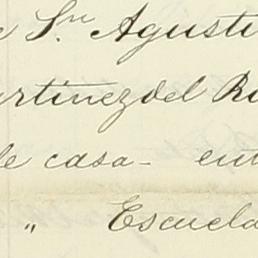 e Sr.n Agusti
artinez del Ri
de casa - ent
" Escuela